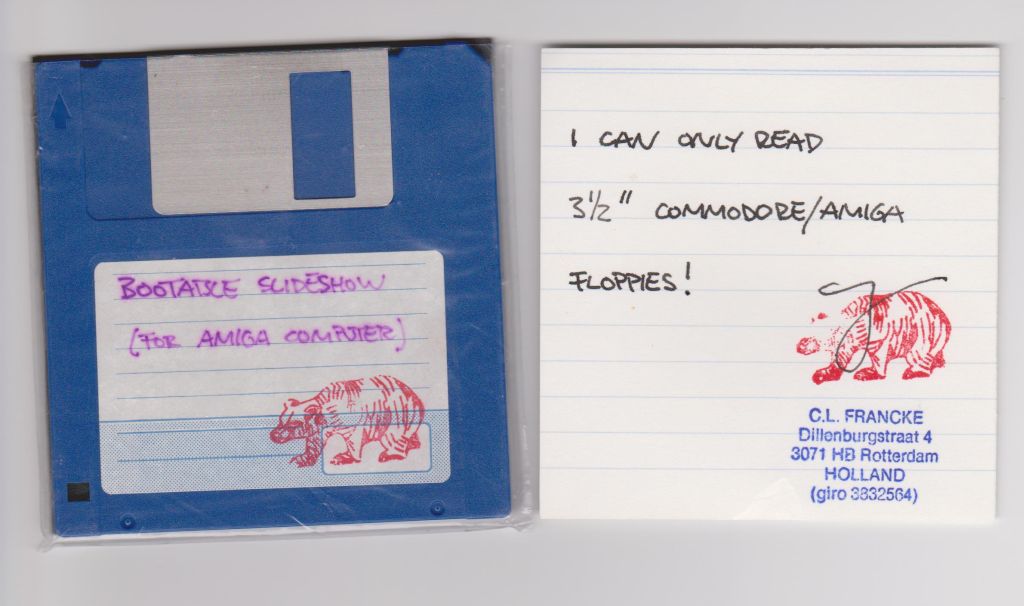 BOOTABLE SLIDESHOW
(FOR AMIGA COMPUTER)
I CAN ONLY READ
3 1/2" COMMODORE/AMIGA
FLOPPIES!
C.L. FRANCKE
Dillenburgstraat 4
3071 HB Rotterdam
HOLLAND
(giro 3832564)